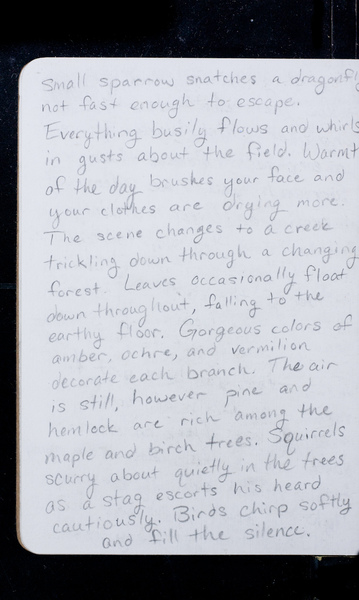 Small sparrow snatches a dragonfly
not fast enough to escape.
Everything busily flows and whirls
in gusts about the field. Warmt
of the day brushes your face and
your clothes are drying more.
The scene changes to a creek
trickling down through a changing
forest. Leaves occasionally float
down throughout, falling to the
earthy floor. Gorgeous colors of
amber, ochre, and vermilion
decorate each branch. The air
is still, however pine and
hemlock are rich among the
maple and birch trees. Squirrels
scurry about quietly in the trees
as a stag escorts his heard
cautiously. Birds chirp softly
and fill the silence.